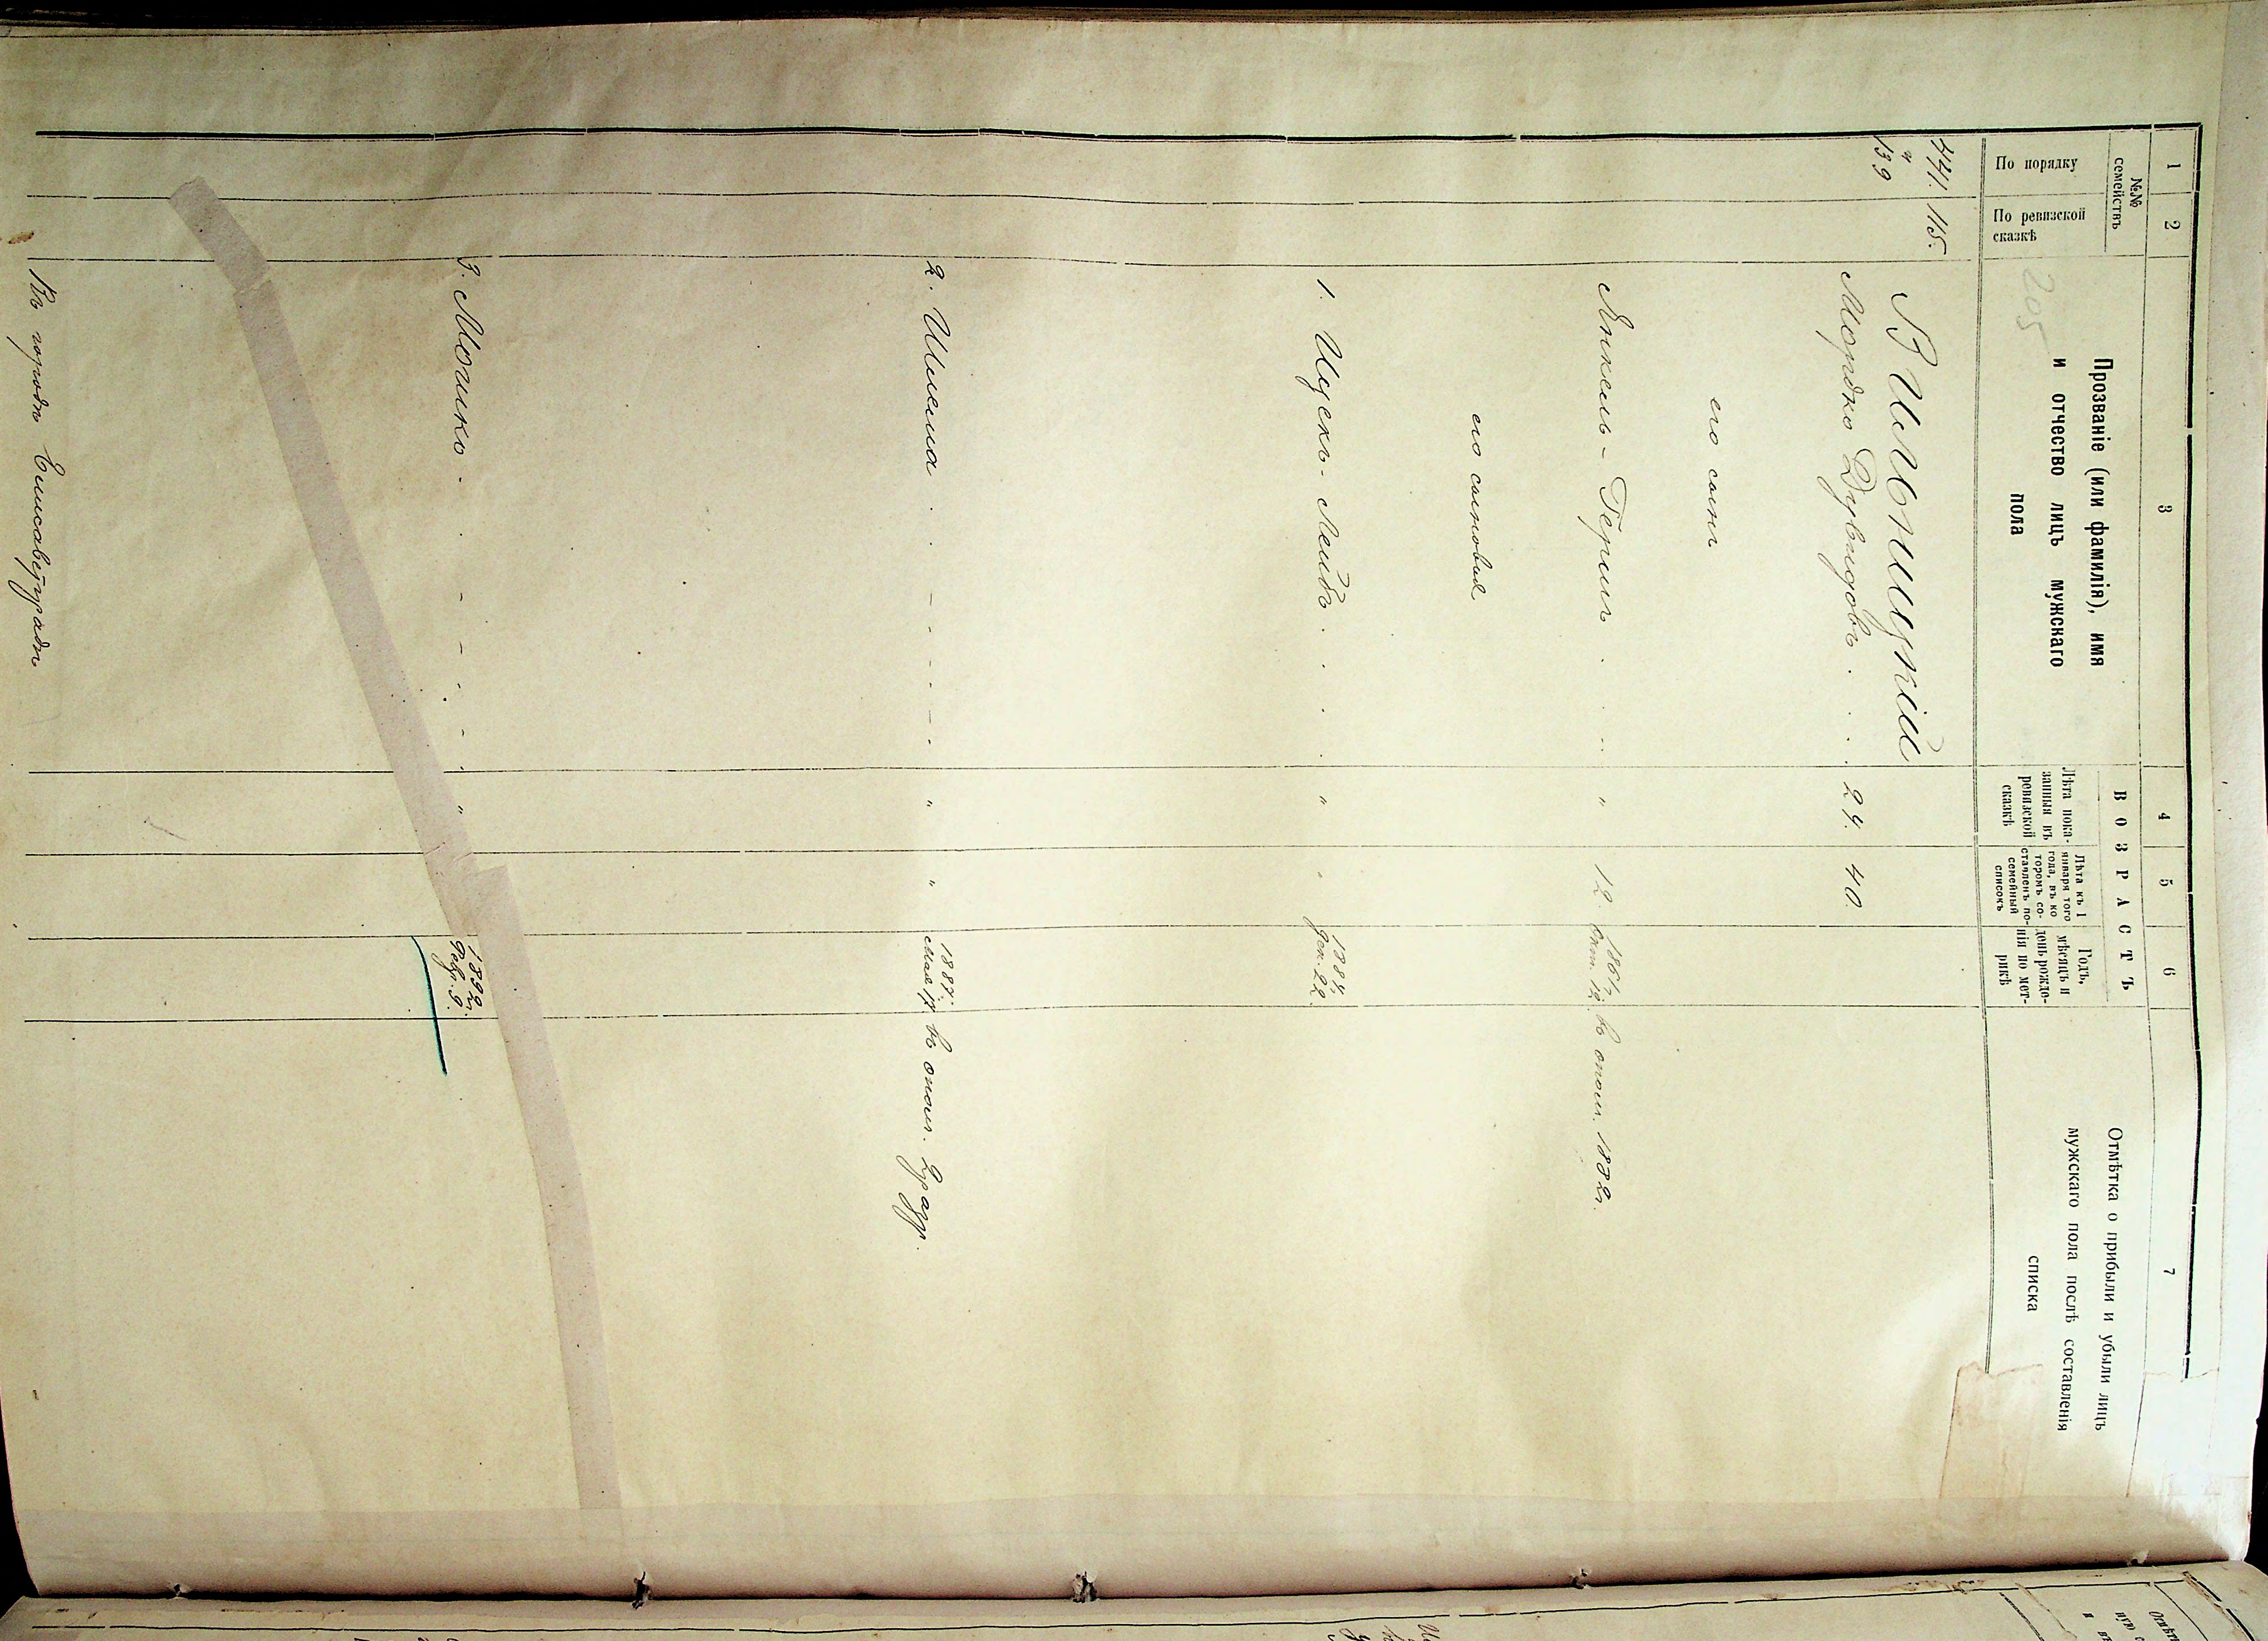 1 2 3 4 5 6 7
№№ семействъ
По порядку
По ревизской сказкѣ
Прозваніе (или фамилія), имя
и отчество лицъ мужскаго
пола
ВОЗРАСТЪ
Лѣта пока-
занныя въ
ревизской
сказкѣ
Лѣта къ 1
января того
года, въ ко
торомъ со-
ставленъ по-
семейный
списокъ
Годъ,
мѣсяцъ и
день рожде-
нія по мет-
рикѣ
Отмѣтка о прибыли и убыли лицъ
мужскаго пола послѣ составленія
списка
205
441. 115.
и
139
Вильницкій
Мордко Дувидовъ 24. 40.
его сынъ
Янкель-Гершъ " 12. 1861 Окт. 12. въ опол. 1882г.
его сыновья
1. Ицекъ-Лейбъ " " 1884 Дек. 22.
2. Шлема " " 1887. Мая 17. въ опол. 2 разр.
3. Мошко " 1892г. Февр. 9.
Въ городѣ Елисаветградѣ